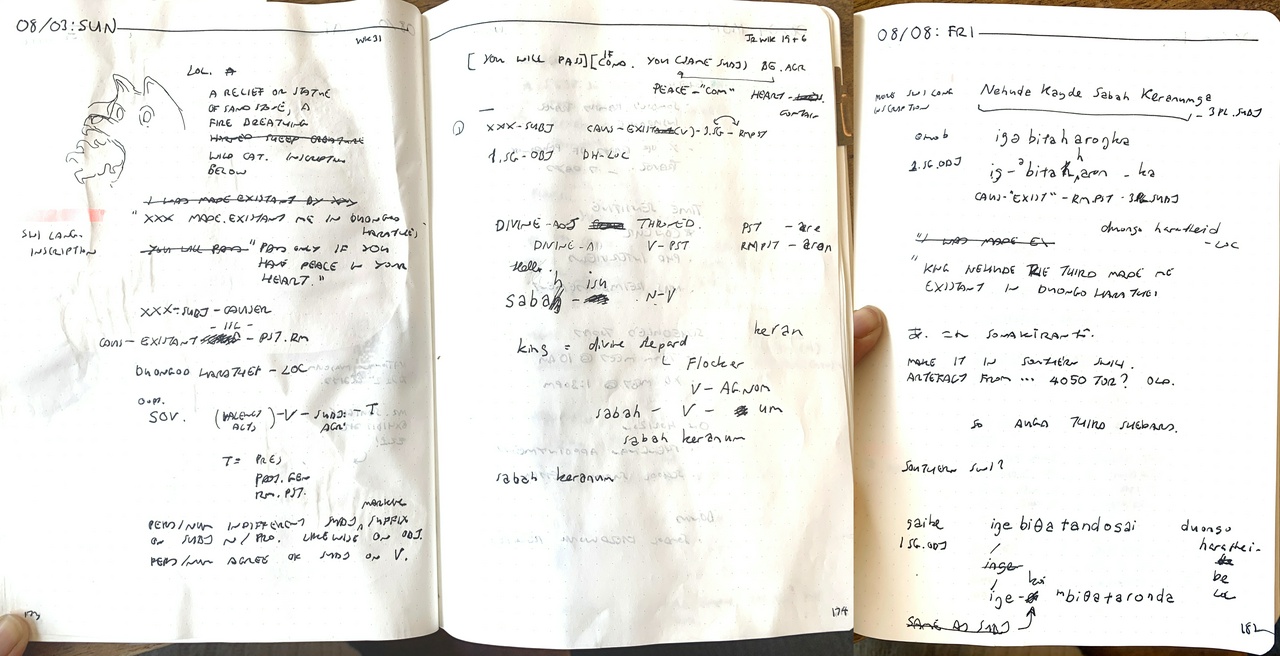 08/03:SUN
WK31
LOL. A
A RELIEF OR STATUE
OF SANDSTONE, A
FIRE BREATHING
WILD CAT. INSCRIPTION
BELOW
I WAS MADE EXISTANT BY XXX
"XXX MADE.EXISTANT ME IN DUONGO
HARATHEI,
SWI LANG.
INSCRIPTION
YOU WILL PASS "PASS ONLY IF YOU
HAVE PEACE IN YOUR
HEART."
XXX-SUBJ - CAUSER
CAUS - EXISTANT - PST.RM
DUONGO HARATHEI - LOC
SOV. (VALENCY ACTS) - V - SUBJ AGR. - T
T = PRES
PAST.GEN
RM.PST.
MARKING
PERS/NUM INDIFFERENT SUBJ SUFFIX
ON SUBJ N/PRO. LIKEWISE ON OBJ.
PERS/NUM AGREE OF SUBJ ON V.
173
JR WK 19+6
[YOU WILL PASS][IF COND. YOU (SAME SUBJ) BE.AGR
PEACE - "COM" HEART -
CONTAIN
① XXX-SUBJ CAUS-EXISTA (V)-3.SG-RMPST
1.SG-OBJ DH-LOC
DIVINE-ADJ THRONED. PST - are
V-PST RMPST - aron
sabah - isu N-V
keran
king = divine shepard
Flocker
V-AGNOM
sabah - V - um
sabah keranum
sabah keranum
174
08/08: FRI
MORE SWI LANG
INSCRIPTION
Nehude Kayde Sabah Keranumga
3PL.SUBJ
omob iga bitaharogka
1.SG.OBJ ig-abitah aron - ka
CAUS-"EXIST"-RMPST-3 SUBJ
duongo haratheid
-LOC
"I WAS MADE EX
"KING NEHUDE THE THIRD MADE ME
EXISTANT IN DUONGO HARATHEI
MAKE IT IN SOUTHERN SWI4.
ARTEFACT FROM ... 4050 TOR? OLD.
SO ANGO THIRD SHEBARD.
SOUTHERN SWI?
gaibe ige biθa tandosai duongo
1SG.OBJ / harathei-
inge be
/ LOC
ige- mbiθataronda
SAME AS SUBJ
182